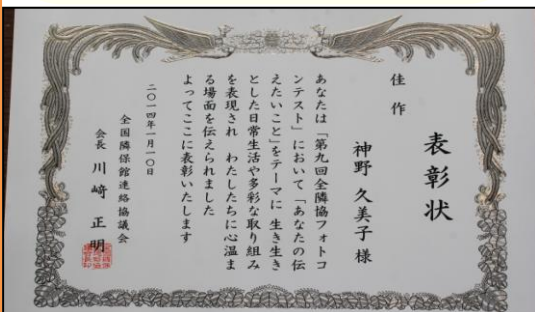 表彰状
佳作
神野 久美子様
あなたは「第九回全隣協フォトコ
ンテスト」において「あなたの伝
えたいこと」をテーマに 生き生き
とした日常生活や多彩な取り組み
を表現され わたしたちに心温ま
る場面を伝えられました
よってここに表彰いたします
二〇一四年一月一〇日
全国隣保館連絡協議会
会長 川﨑 正明